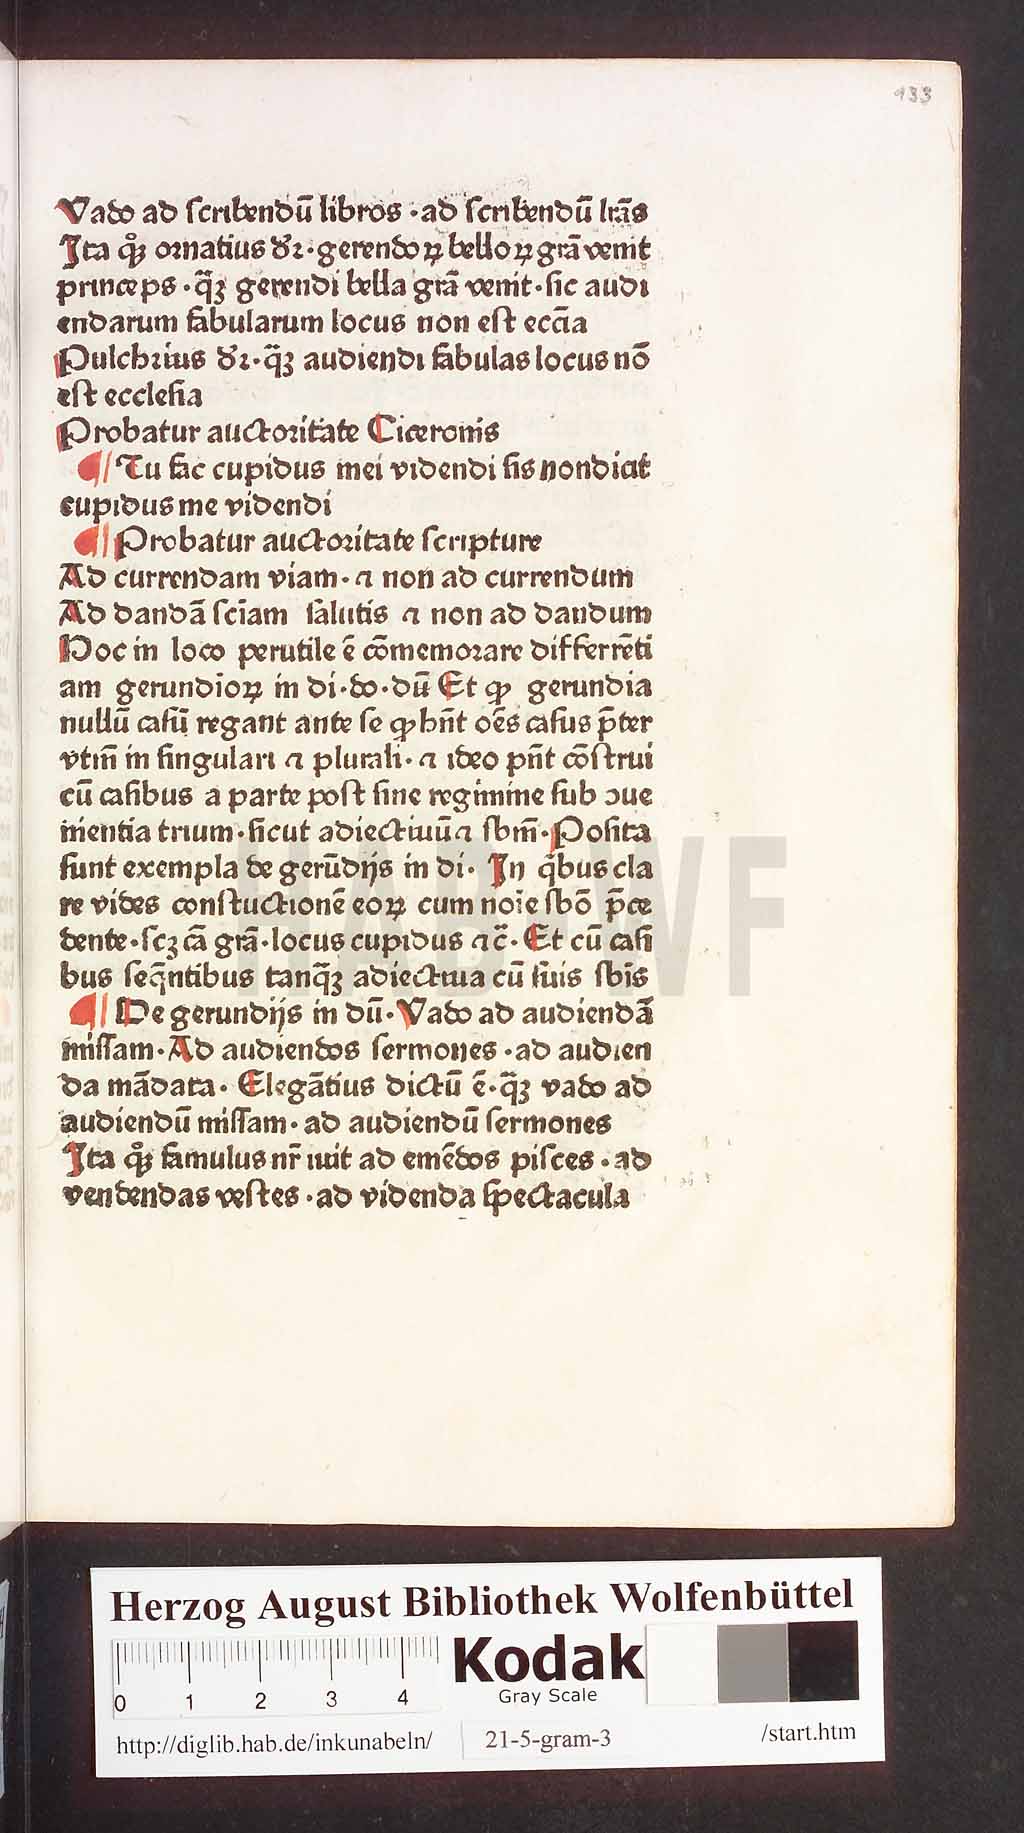 133
Vado ad ſcribendū libros · ad ſcribendū lr̄as
Ita qͦꝫ ornatius dr̄ · gerendoꝝ belloꝝ gr̄a venit
princeps · q̄ꝫ gerendi bella gr̄a venit · ſic audi
endarum fabularum locus non eſt eccīa
Pulchrius dr̄ · q̄ꝫ audiendi fabulas locus nō
eſt eccleſia
Probatur auctoritate Ciceronis
¶ Tu fac cupidus mei videndi ſis non dicit
cupidus me videndi
¶ Probatur auctoritate ſcripture
Ad currendam viam · ⁊ non ad currendum
Ad dandā ſciam ſalutis ⁊ non ad dandum
Hoc in loco perutile ē cōmemorare differrēti
am gerundioꝝ in di · do · dū Et ꝙ gerundia
nullū caſū regant ante ſe ꝙ hn̄t oēs caſus p̄ter
vtm̄ in ſingulari ⁊ plurali · ⁊ ideo pn̄t cōſtrui
cū caſibus a parte poſt ſine regimine ſub ꝯue
nientia trium · ſicut adiectiuū ⁊ ſbm̄ · Poſita
ſunt exempla de gerūdijs in di · In q̄bus cla
re vides conſtuctionē eoꝝ cum noīe ſbō p̄ce
dente · ſcꝫ cā gr̄a · locus cupidus ⁊c̄ · Et cū caſi
bus ſeq̄ntibus tanq̄ꝫ adiectiua cū ſuis ſbīs
¶ De gerundijs in dū · Vado ad audiendā
miſſam · Ad audiendos ſermones · ad audien
da mādata · Elegātius dictū ē · q̄ꝫ vado ad
audiendū miſſam · ad audiendū ſermones
Ita qͦꝫ famulus nr̄ iuit ad emēdos piſces · ad
vendendas veſtes · ad videnda ſpectacula
HAB WF
Herzog August Bibliothek Wolfenbüttel
0 1 2 3 4
Kodak
Gray Scale
http://diglib.hab.de/inkunabeln/ 21-5-gram-3 /start.htm